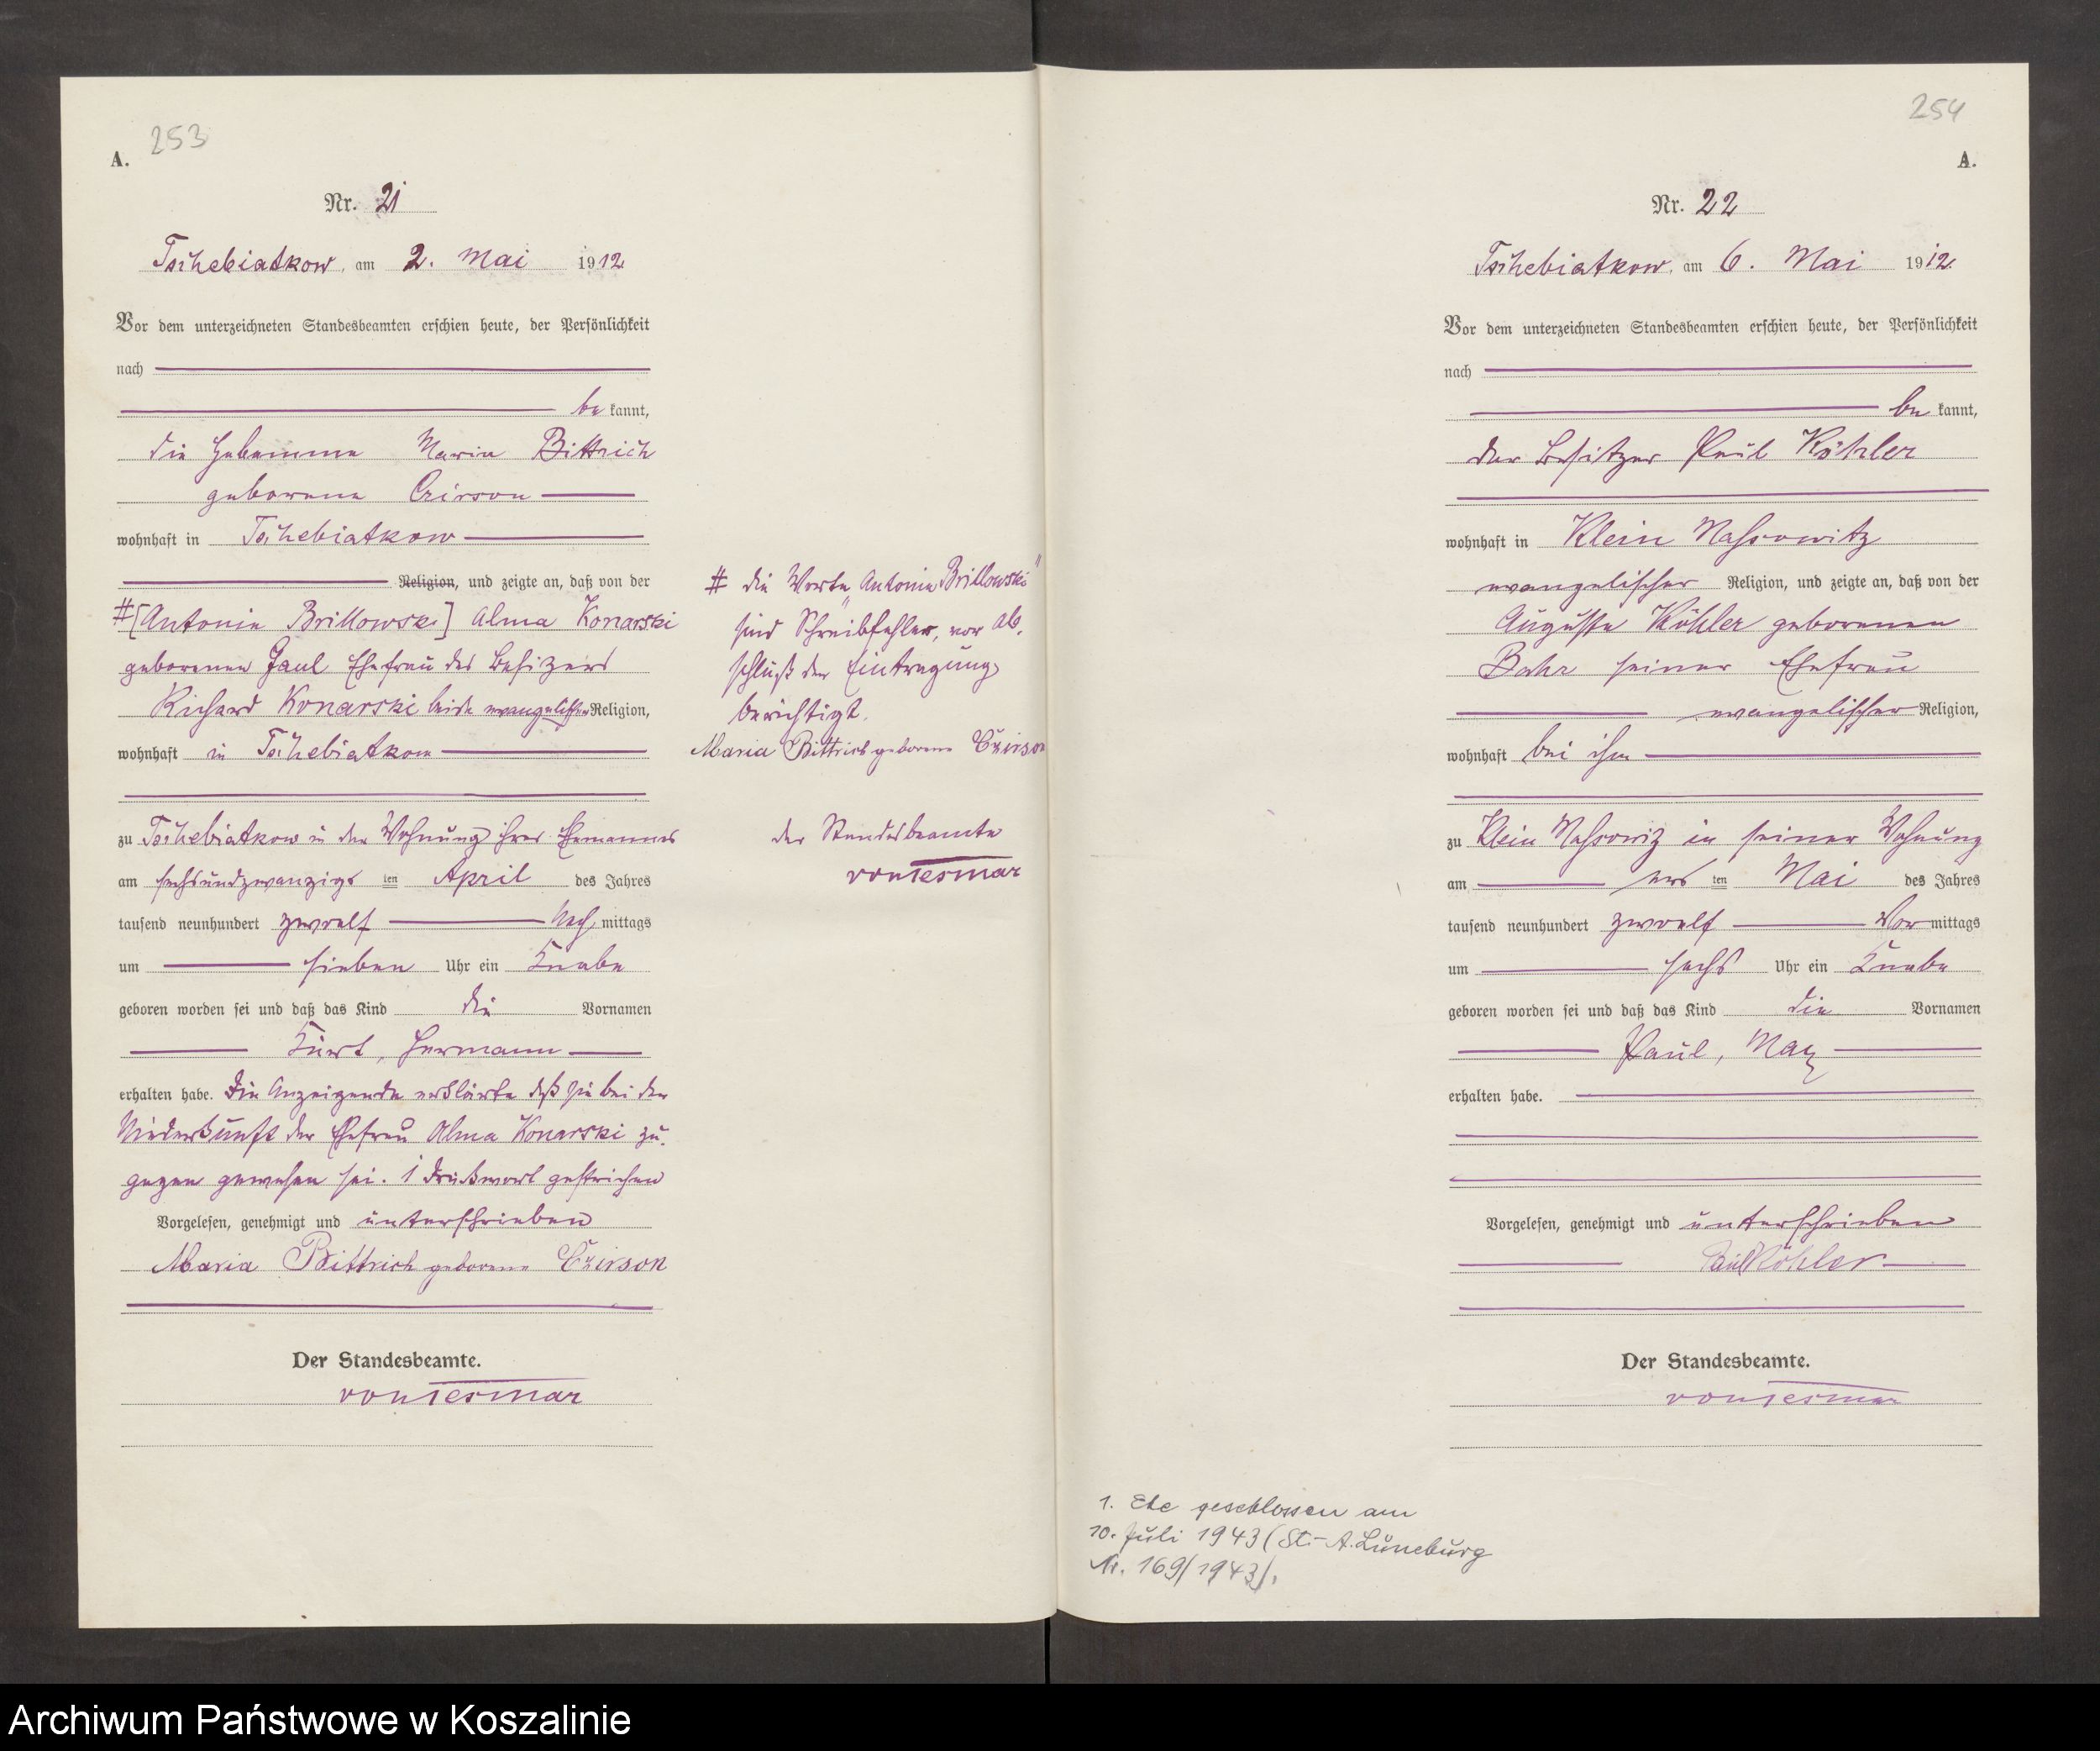 253
A.
Nr. 21
Tschebiatkow, am 2. Mai 1912
Vor dem unterzeichneten Standesbeamten erschien heute, der Persönlichkeit
nach
be kannt,
die Hebamme Maria Bittrich
geborene Czirson
wohnhaft in Tschebiatkow
Religion, und zeigte an, daß von der
# [Antonie Brillowski] Alma Konarski
geborenen Jaul Ehefrau des Besizers
Richard Konarski beide evangelischer Religion,
wohnhaft in Tschebiatkow
zu Tschebiatkow in der Wohnung ihres Ehemannes
am sechsundzwanzigs ten April des Jahres
tausend neunhundert zwoelf Nach mittags
um sieben Uhr ein Knabe
geboren worden sei und daß das Kind die Vornamen
Kurt, Hermann
erhalten habe. Die Anzeigende erklärte daß sie bei der
Niederkunft der Ehefrau Alma Konarski zu-
gegen gewesen sei. 1 Druckwort gestrichen
Vorgelesen, genehmigt und unterschrieben
Maria Bittrich geborene Czirson
Der Standesbeamte.
von Tesmar
# die Worte „Antonie Brillowski"
sind Schreibfehler, vor Ab-
schluß der Eintragung
berichtigt.
Maria Bittrich geborene Czirson
der Standesbeamte
von Tesmar
254
A.
Nr. 22
Tschebiatkow, am 6. Mai 1912
Vor dem unterzeichneten Standesbeamten erschien heute, der Persönlichkeit
nach
be kannt,
der Besitzer Paul Köhler
wohnhaft in Klein Massowitz
evangelischer Religion, und zeigte an, daß von der
Auguste Köhler geborenen
Bahr seiner Ehefrau
evangelischer Religion,
wohnhaft bei ihm
zu Klein Massowiz in seiner Wohnung
am ers ten Mai des Jahres
tausend neunhundert zwoelf Vor mittags
um sechs Uhr ein Knabe
geboren worden sei und daß das Kind die Vornamen
Paul, Max
erhalten habe.
Vorgelesen, genehmigt und unterschrieben
Paul Köhler
Der Standesbeamte.
von Tesmar
1. Ehe geschlossen am
10. Juli 1943 (St.-A. Lüneburg
Nr. 169/1943).
Archiwum Państwowe w Koszalinie